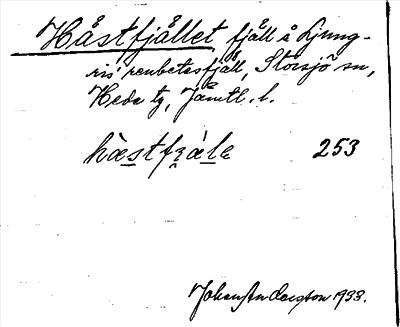 Håstfjället fjäll å Ljung-
ris' renbetesfjäll, Storsjö sn,
Hede tg, Jämtl. l.
håstfjäle 253
Johan Andersson 1933.